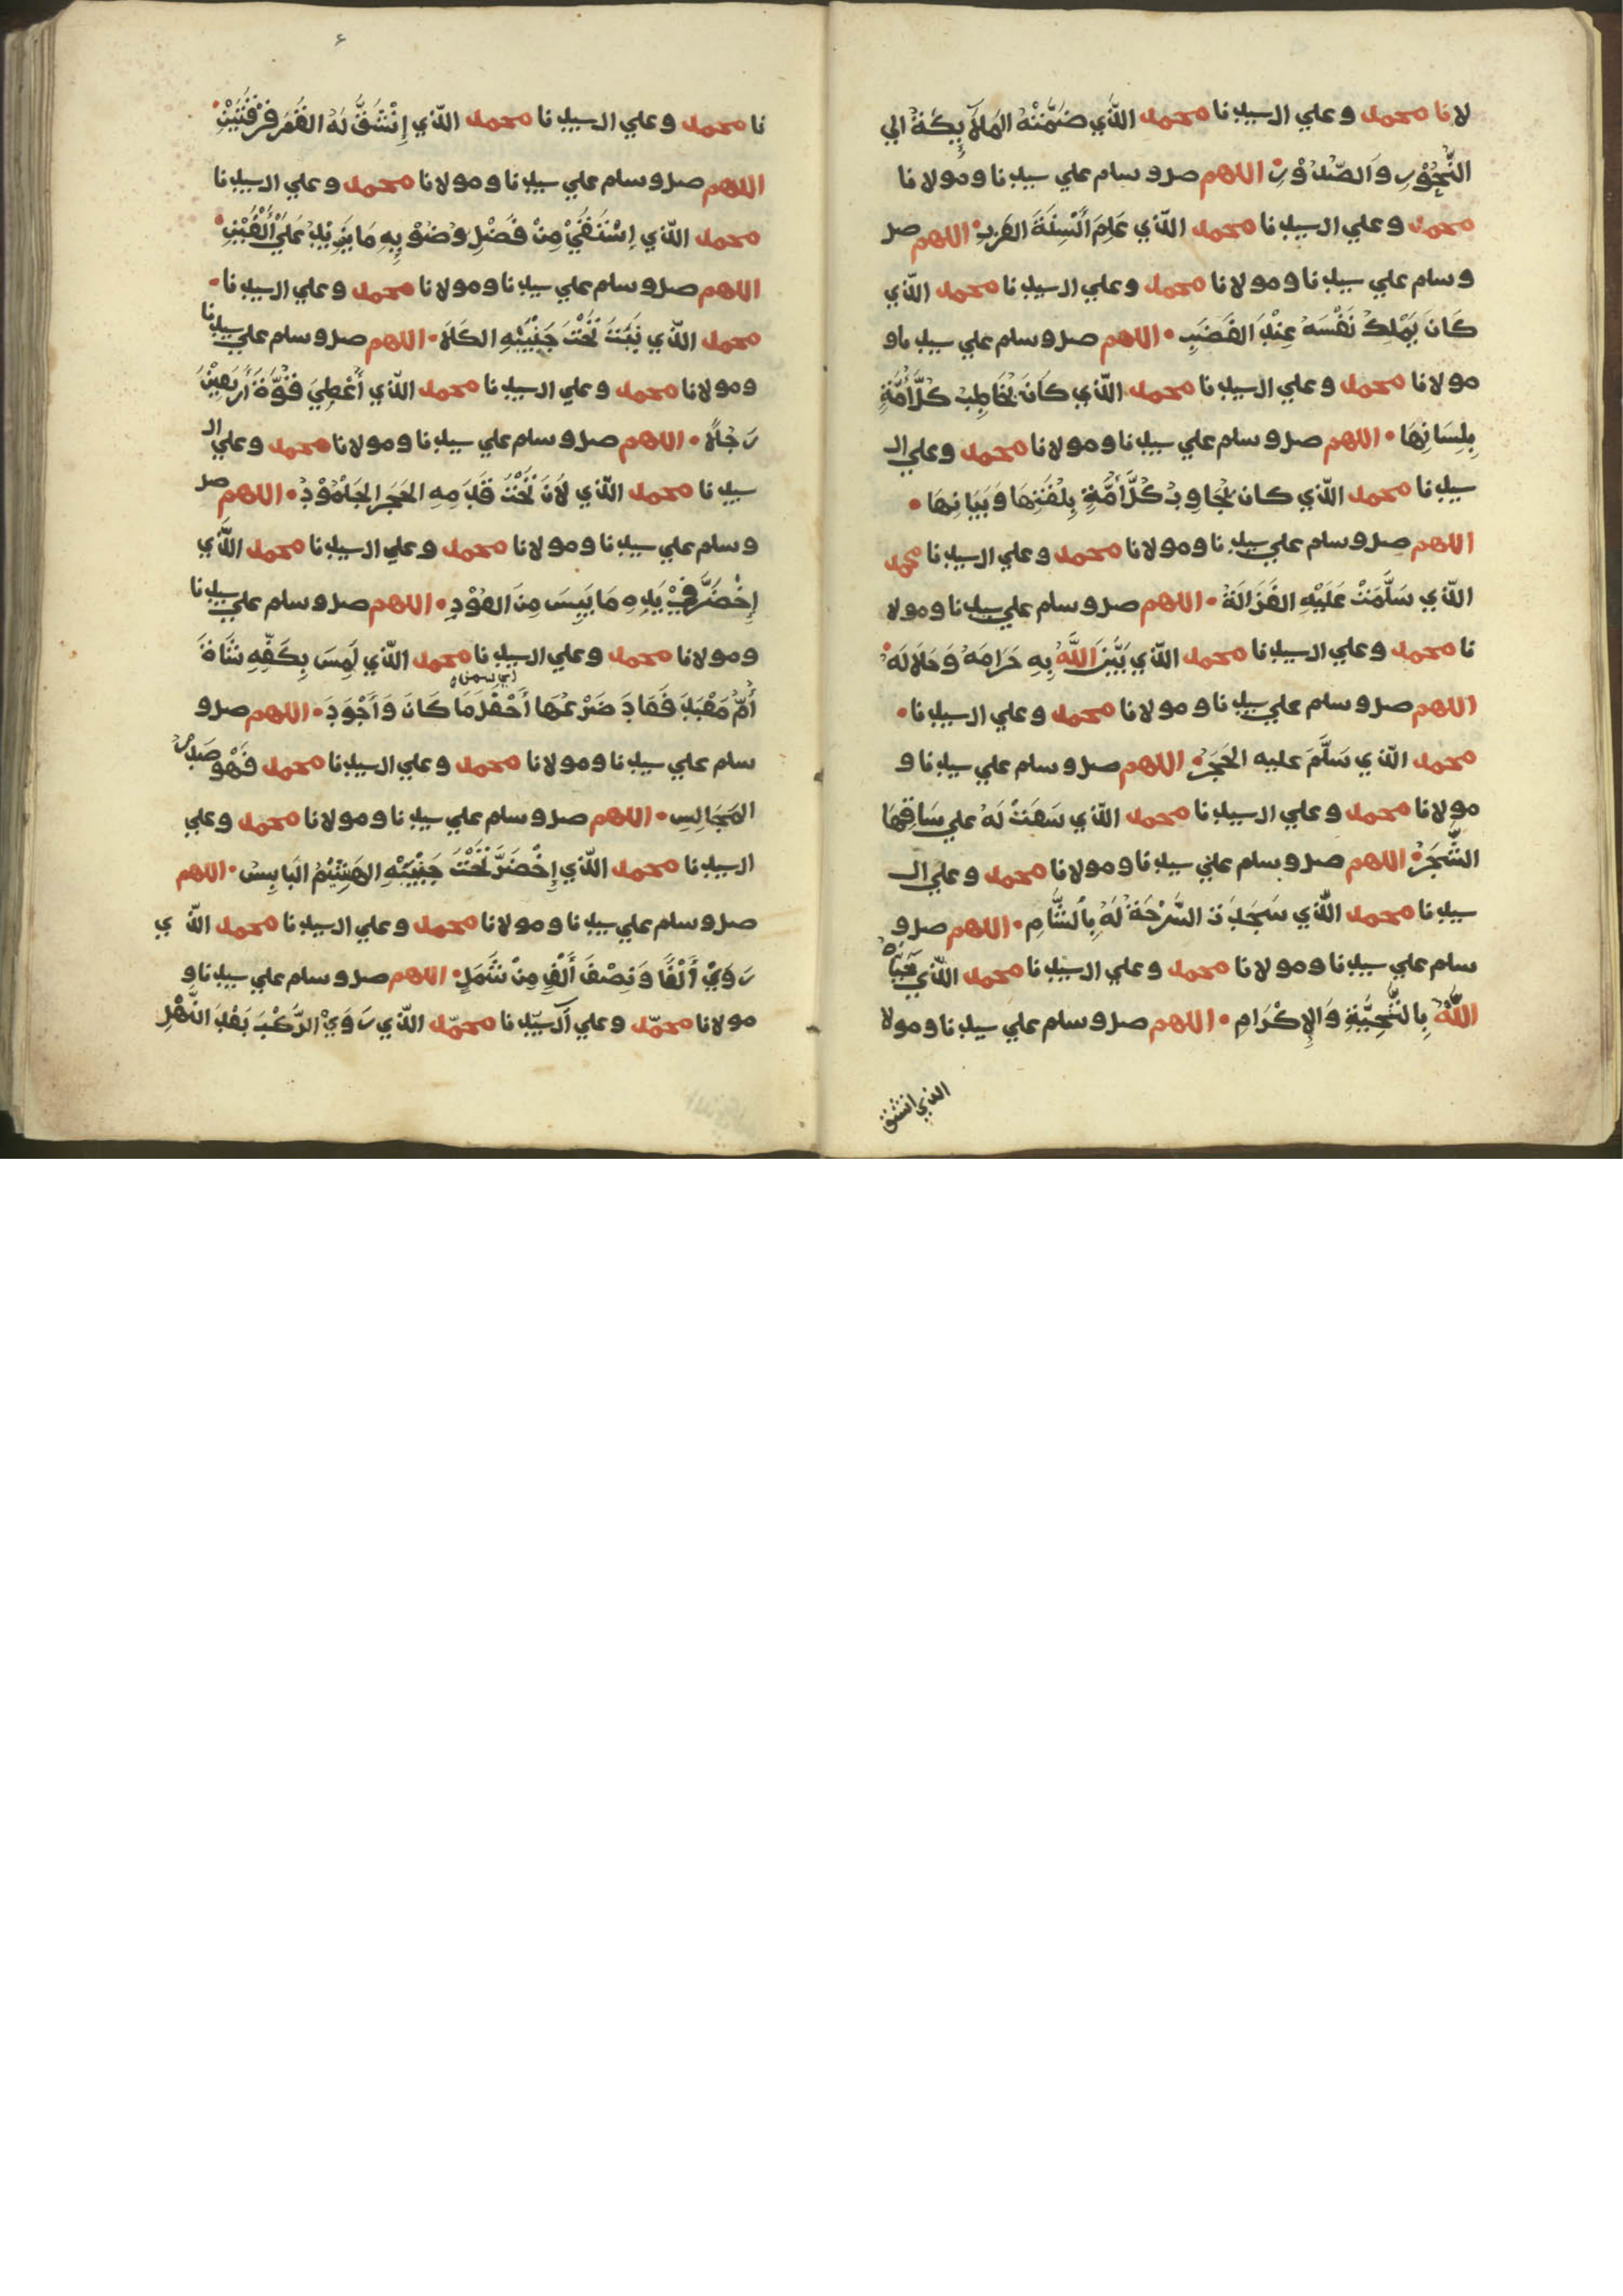 لانا محمد وعلي ال سيدنا محمد الّذي ضَمَّتْهُ المَلَآئِكَةُ الي
النُّحُوْرِ وَالصُّدُوْرِ اللهم صل وسلم علي سيدنا ومولانا
محمد وعلي ال سيدنا محمد الّذي عَلِمَ أَلْسِنَةَ العَرَبِ اللهم صل
وسلم علي سيدنا ومولانا محمد وعلي ال سيدنا محمد الّذي
كَانَ يَمْلِكُ نَفْسَهُ عِنْدَ الغَضَبِ اللهم صل وسلم علي سيدناو
مولانا محمد وعلي ال سيدنا محمد الّذي كَانَ يُخَاطِبُ كُلَّ أُمَّةٍ
بِلِسَانِهَا اللهم صل وسلم علي سيدنا ومولانا محمد وعلي ال
سيدنا محمد الّذي كان يُجَاوِبُ كُلَّ أُمَّةٍ بِلُغَتِهَا وَبَيَانِهَا
اللهم صل وسلم علي سيدنا ومولانا محمد وعلي ال سيدنا محمد
الّذي سَلَّمَتْ عَلَيْهِ الغَزَالَةُ اللهم صل وسلم علي سيدنا ومولا
نا محمد وعلي ال سيدنا محمد الّذي بَيَّنَ اللّهُ بِهِ حَرَامَهُ وَحَلَالَهُ
اللهم صل وسلم علي سيدنا ومولانا محمد وعلي ال سيدنا
محمد الّذي سَلَّمَ عليه الحَجَرُ اللهم صل وسلم علي سيدنا و
مولانا محمد وعلي ال سيدنا محمد الّذي سَعَتْ لَهُ علي سَاقِهَا
الشَّجَرُ اللهم صل وسلم علي سيدنا ومولانا محمد وعلي ال
سيدنا محمد الّذي سَجَدَتْ السَّرْحَةُ لَهُ بِالشَّامِ اللهم صل و
سلم علي سيدنا ومولانا محمد وعلي ال سيدنا محمد الّذي حَيَّاهُ
اللّهُ بِالتَّحِيَّةِ وَالإِكْرَامِ اللهم صل وسلم علي سيدنا ومولا
الذي انشق
٤
نا محمد وعلي ال سيدنا محمد الّذي إِنْشَقَّ لَهُ القَمَرُ فِرْقَتَيْنِ
اللهم صل وسلم علي سيدنا ومولانا محمد وعلي ال سيدنا
محمد الّذي اِسْتَقَيْ مِنْ فَضْلِ وُضُوْبِهِ مَا يَزِيْدُ عَلَيْ أَلْفَيْنِ
اللهم صل وسلم علي سيدنا ومولانا محمد وعلي ال سيدنا
محمد الّذي نَبَتَ تَحْتَ جَنْبَيْهِ الكَلَأُ اللهم صل وسلم علي سيدنا
ومولانا محمد وعلي ال سيدنا محمد الّذي أُعْطِيَ قُوَّةَ أَرْبَعِيْنَ
رَجُلاً اللهم صل وسلم علي سيدنا ومولانا محمد وعلي ال
سيدنا محمد الّذي لَانَ تَحْتَ قَدَمِهِ الحَجَرُ الجَلْمُوْدُ اللهم صل
وسلم علي سيدنا ومولانا محمد وعلي ال سيدنا محمد الّذي
إِخْضَرَّ فِيْ يَدِهِ مَا يَبِسَ مِنَ العُوْدِ اللهم صل وسلم علي سيدنا
ومولانا محمد وعلي ال سيدنا محمد الّذي لَمِسَ بِكَفِّهِ شَاةَ
أُمِّ مَعْبَدٍ فَعَادَ ضَرْعُهَا أَحْفَلَ مَا كَانَ وَأَجْوَدَ اللهم صل و
سلم علي سيدنا ومولانا محمد وعلي ال سيدنا محمد فَهْوَ صَدْرُ
المَجَالِسِ اللهم صل وسلم علي سيدنا ومولانا محمد وعلي
ال سيدنا محمد الّذي إِخْضَرَّ تَحْتَ جَنْبَيْهِ الهَشِيْمُ اليَابِسُ اللهم
صل وسلم علي سيدنا ومولانا محمد وعلي ال سيدنا محمد الّذي
رَوَيْ أَلْفًا وَنِصْفَ أَلْفٍ مِنْ ثَمَدٍ اللهم صل وسلم علي سيدنا و
مولانا محمّد وعلي آل سيّدنا محمّد الّذي رَوَيْ الرَّكْبَ بَعْدَ النَّهْلِ